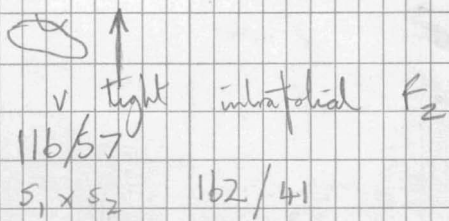 v tight intrafolial F2
116/57
S1 x S2 162/41